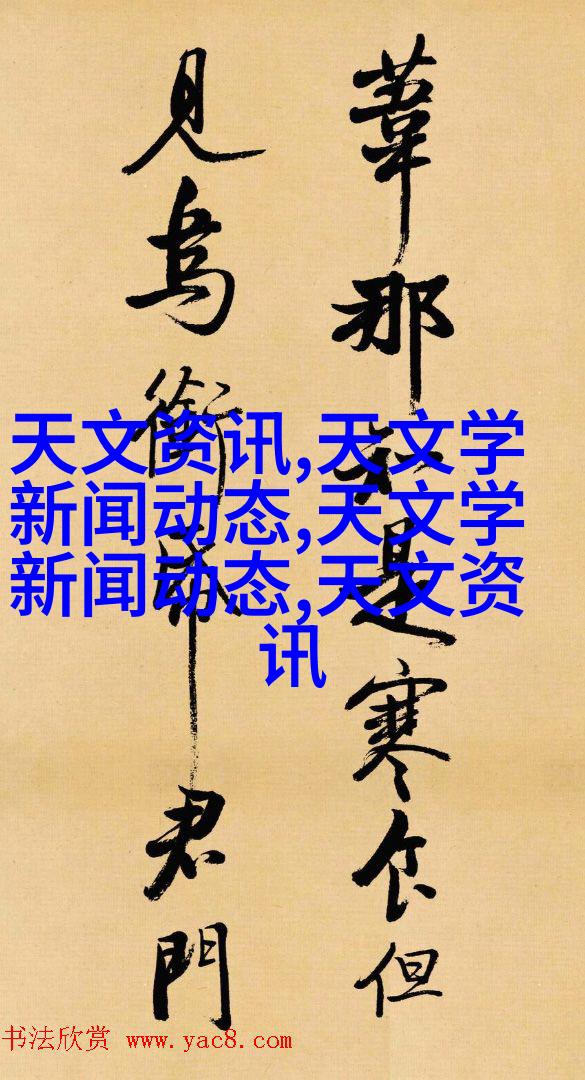 葦那知是寒食但
見烏銜帋君門
天文资讯,天文学
新闻动态,天文学
新闻动态,天文资
讯
书法欣赏 www.yac8.com